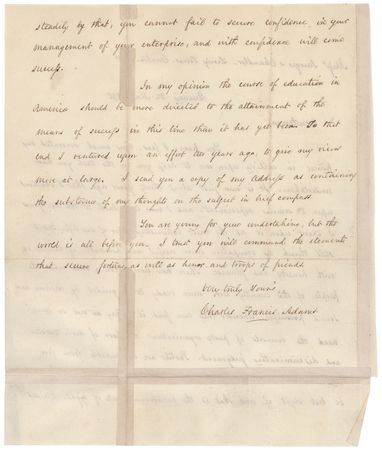 steadily by that, you cannot fail to secure confidence in your
management of your enterprise, and with confidence will come
success.
In my opinion the course of education in
America should be more directed to the attainment of the
means of success in this line than it has yet been. To that
end I ventured upon an effort two years ago, to give my views
more at large. I send you a copy of my Address as containing
the substance of my thoughts on the subject in brief compass.
You are young for your undertaking, but the
world is all before you. I trust you will command the elements
that secure fortune, as well as honor and troops of friends.
Very truly Yours
Charles Francis Adams